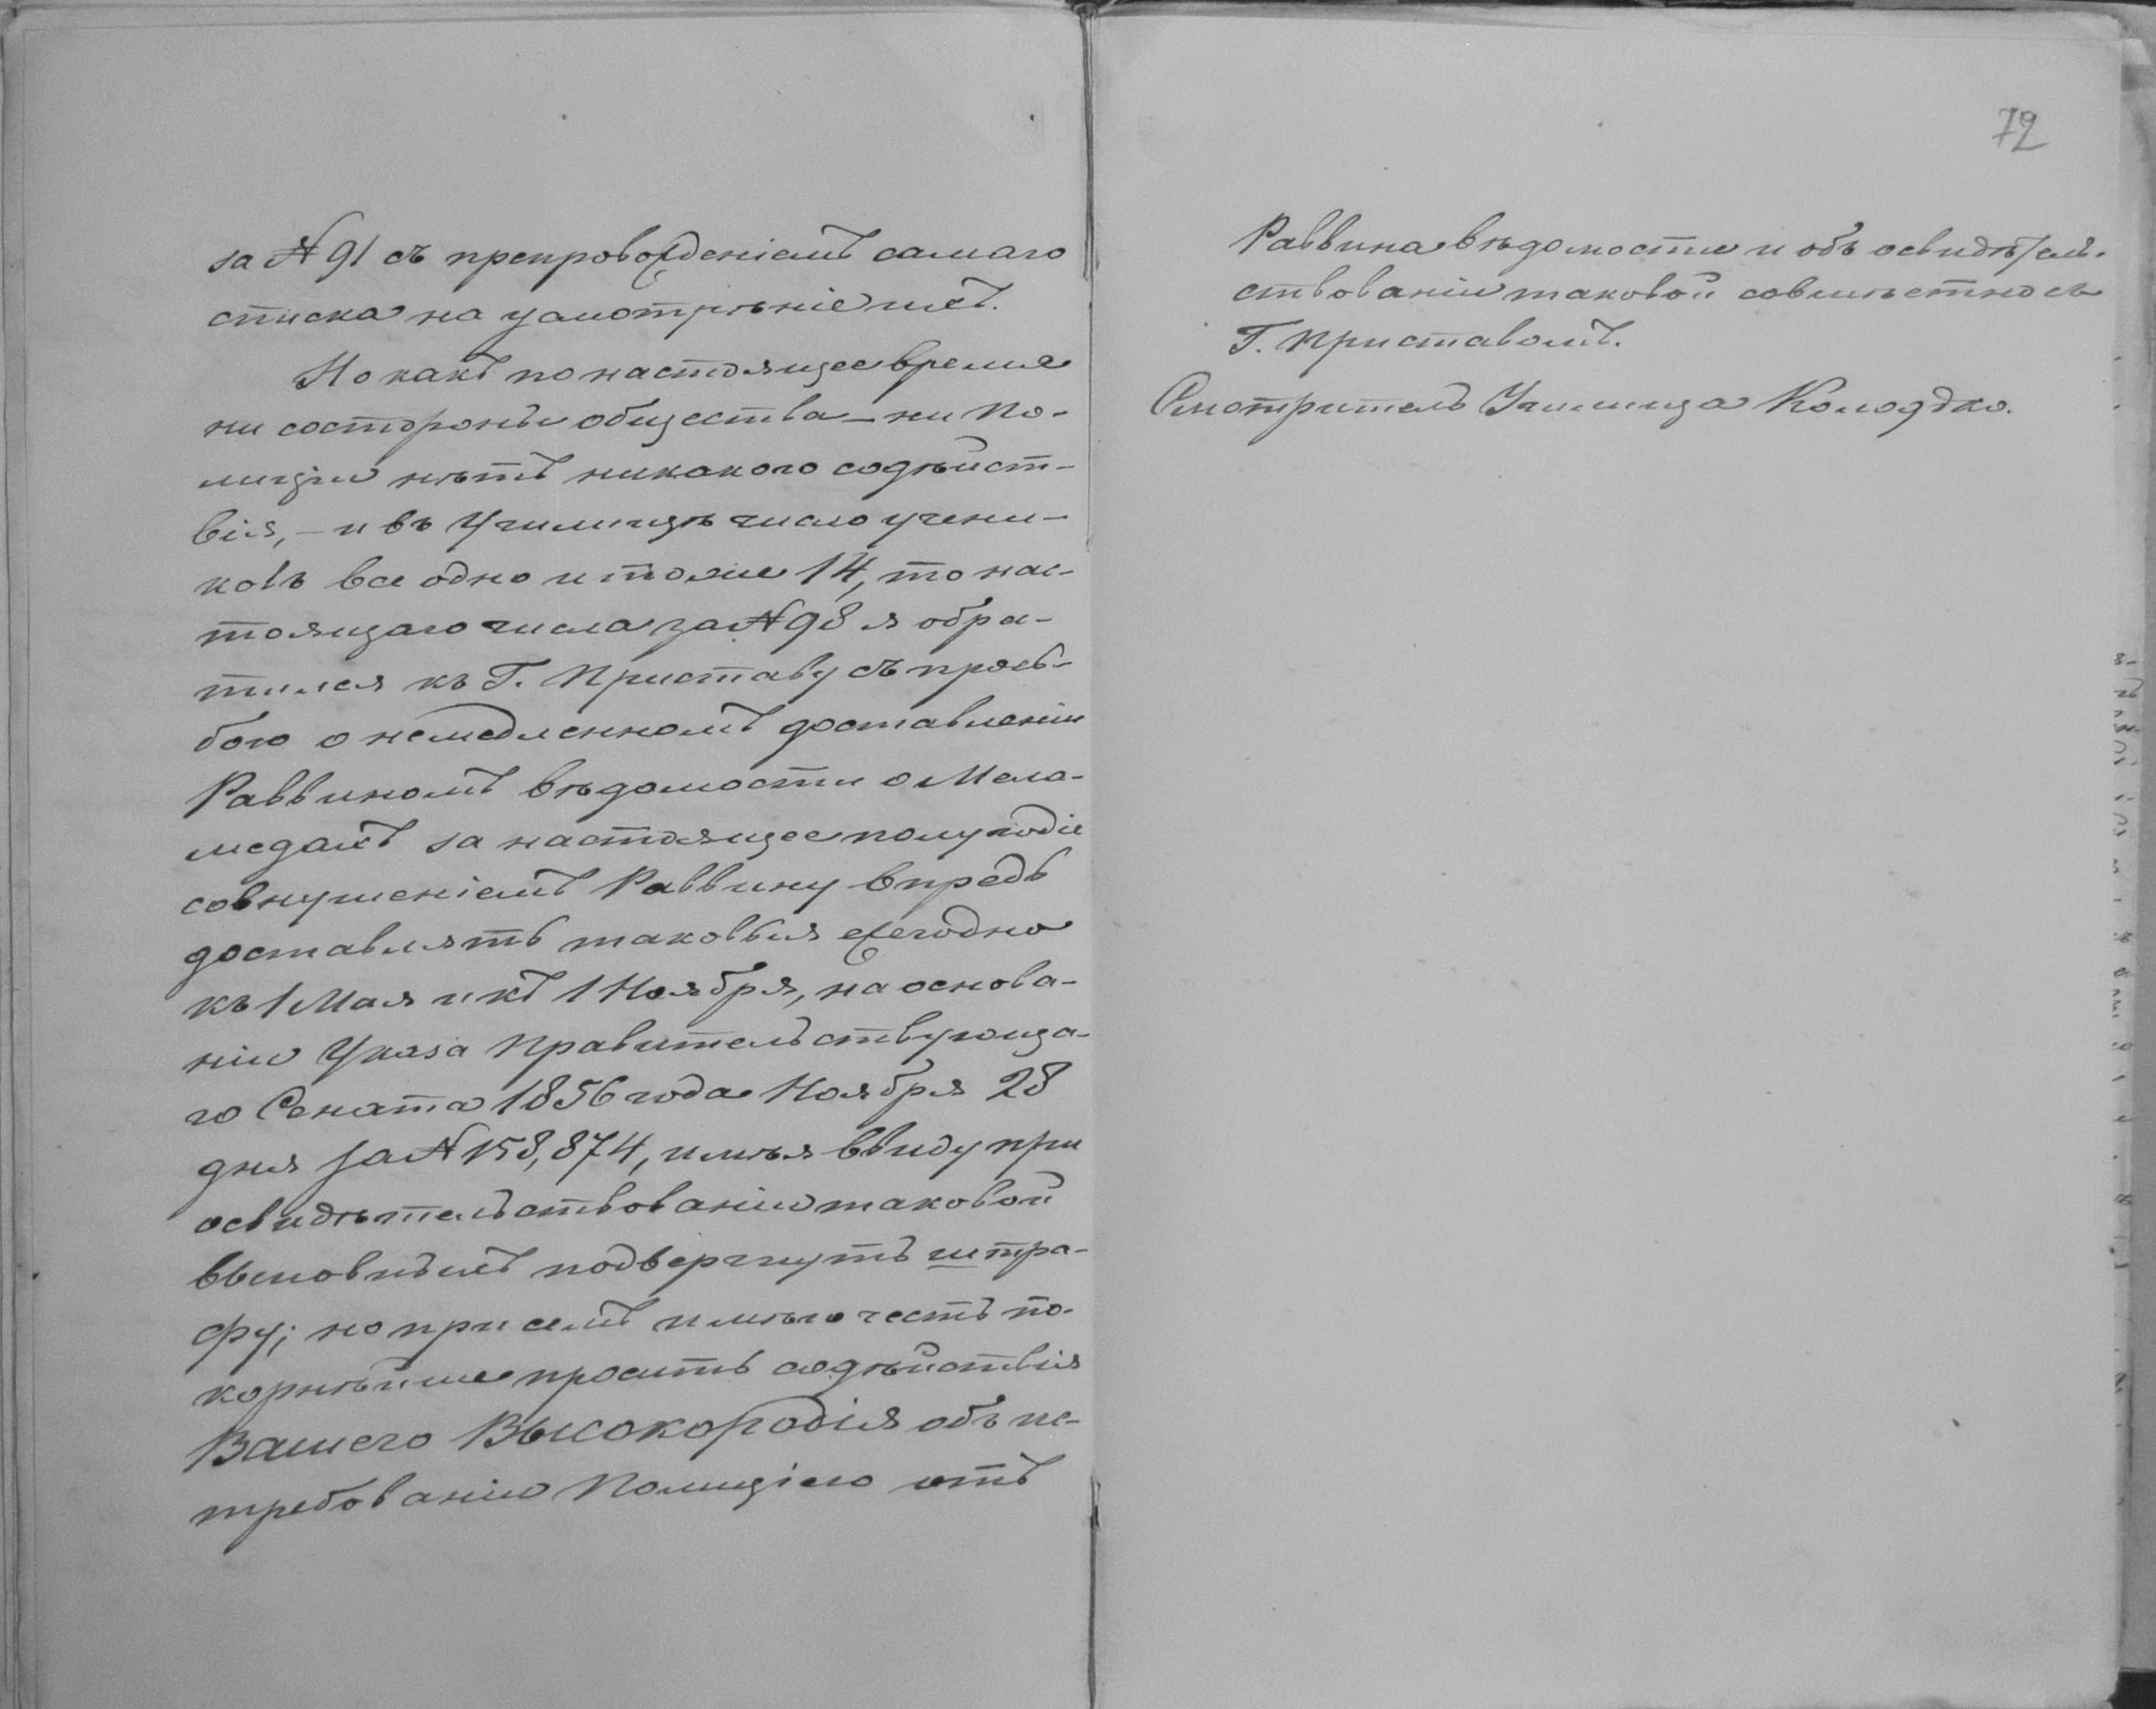 за № 91 съ препровожденіемъ самаго
списка на усмотрѣніе ихъ.
Но какъ по настоящее время
ни состороны общества – ни По-
лиціи нѣтъ никакого содѣйст-
вія, – и въ Училищѣ число учени-
ковъ все одно и тоже 14, то нас-
тоящаго числа за № 98 я обра-
тился къ Г. Приставу съ прось-
бою о немедленномъ доставленіи
Раввиномъ вѣдомости о Мела-
медахъ за настоящее полугодіе
совнушеніемъ Раввину впредь
доставлять таковыя ежегодно
къ 1 Мая и къ 1 Ноября, на основа-
ніи Указа Правительствующа-
го Сената 1856 года Ноября 28
дня за № 158,874, имѣя ввиду при
освидѣтельствованіи таковой
выновныхъ подвергнуть штра-
фу; но при семъ имѣю честь по-
корнѣйше просить содѣйствія
Вашего Высокородія объ ис-
требованіи Полиціею отъ
72
Раввина вѣдомости и объ освидѣтель-
ствованіи таковой совмѣстно съ
Г. Приставомъ.
Смотритель Училища Колодко.